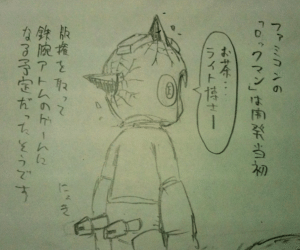 ファミコンの
「ロックマン」は開発当初
版権を取って
鉄腕アトムのゲームに
なる予定だったそうです
お茶…
ライト博士ー
にょき